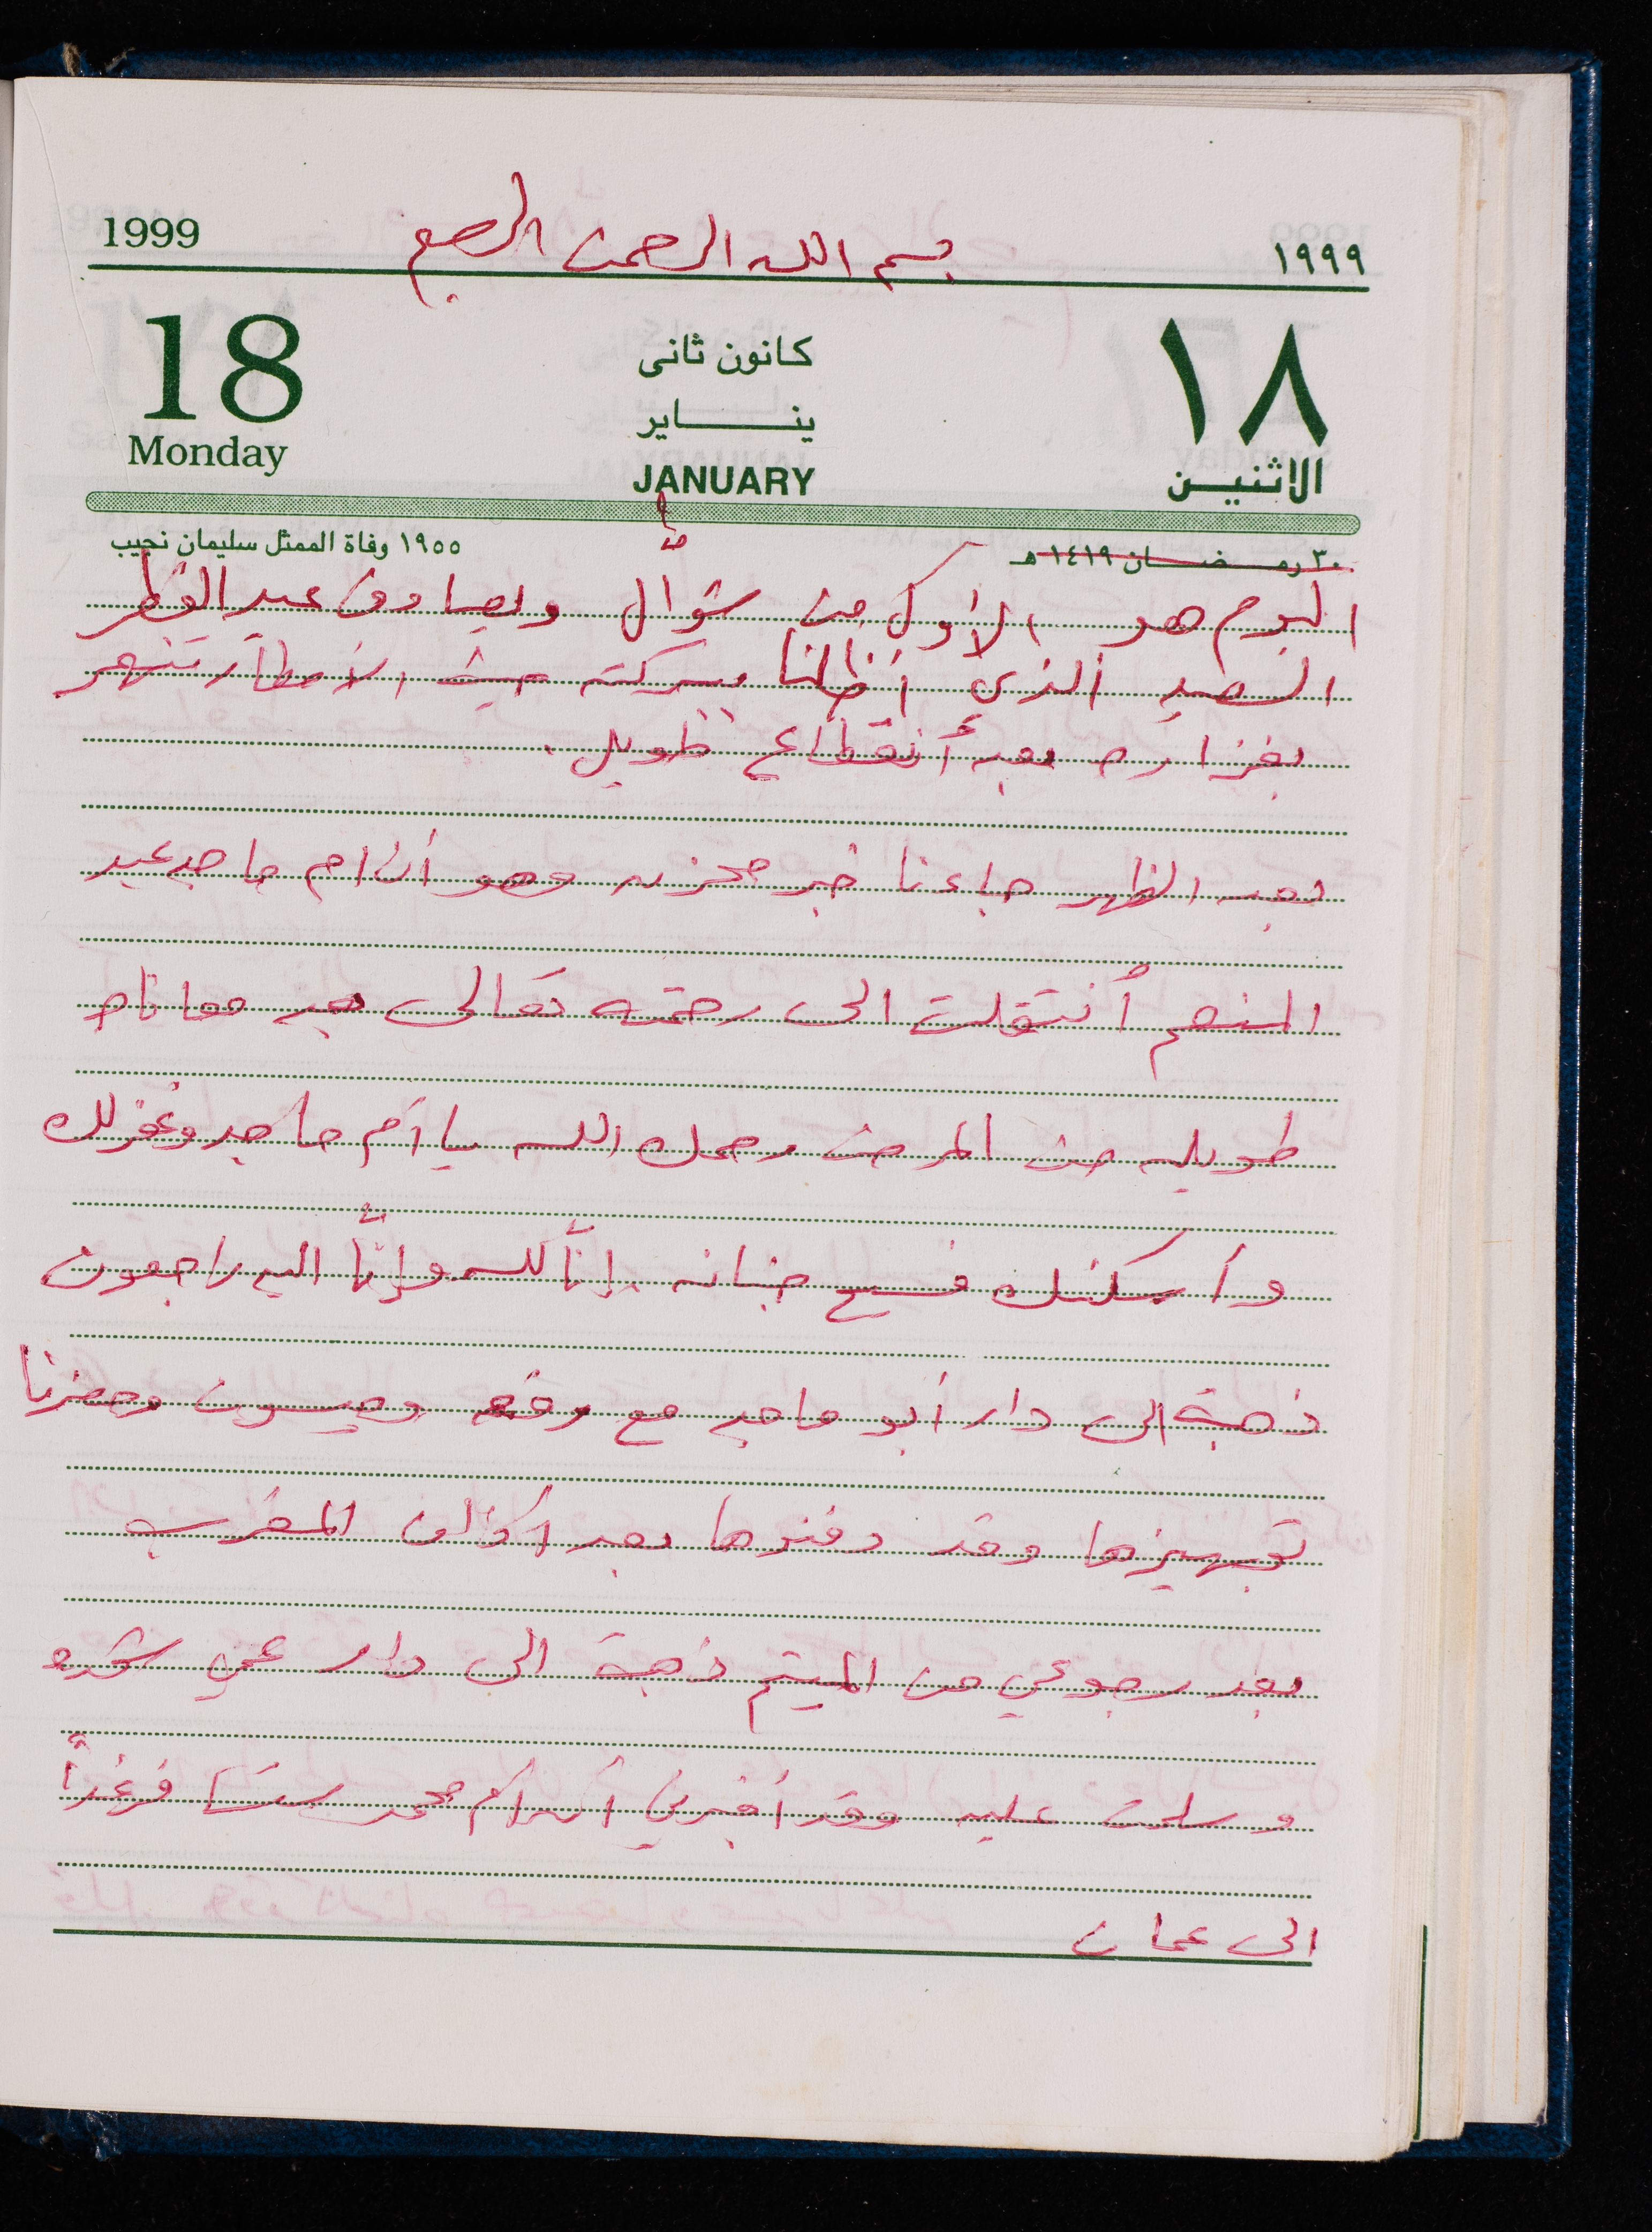 1999 بسم الله الرحمن الرحيم ١٩٩٩
18 كانون ثانى ١٨
ينـــــــاير
Monday JANUARY الاثنيـــن
١٩٥٥ وفاة الممثل سليمان نجيب ٣٠ رمـــضـــان ١٤١٩هـ
اليوم هو الأول من شوّال ويصادف عيد الفطر
السعيد الذي أظلنا ببركته حيث الأمطار تنهمر
بغزاره بعد أنقطاع طويل.
بعد الظهر جاءنا خبر محزن وهو أن ام ماجد عبد
المنعم أنتقلت الى رحمته تعالى بعد معاناه
طويله من المرض رحمك الله يا أم ماجد وغفر لك
وأسكنك فسيح جنانه إنّا لله وإنّا اليه راجعون
ذهبة الى دار أبو ماجد مع وميسون وحضرنا
تجهيزها وقد دفنوها بعد أذان المغرب
بعد رجوعي من الميتم ذهبة الى دار عمي
وسلمت عليه وقد أخبرني أن أم محمد ستسافر غداً
الى عمان